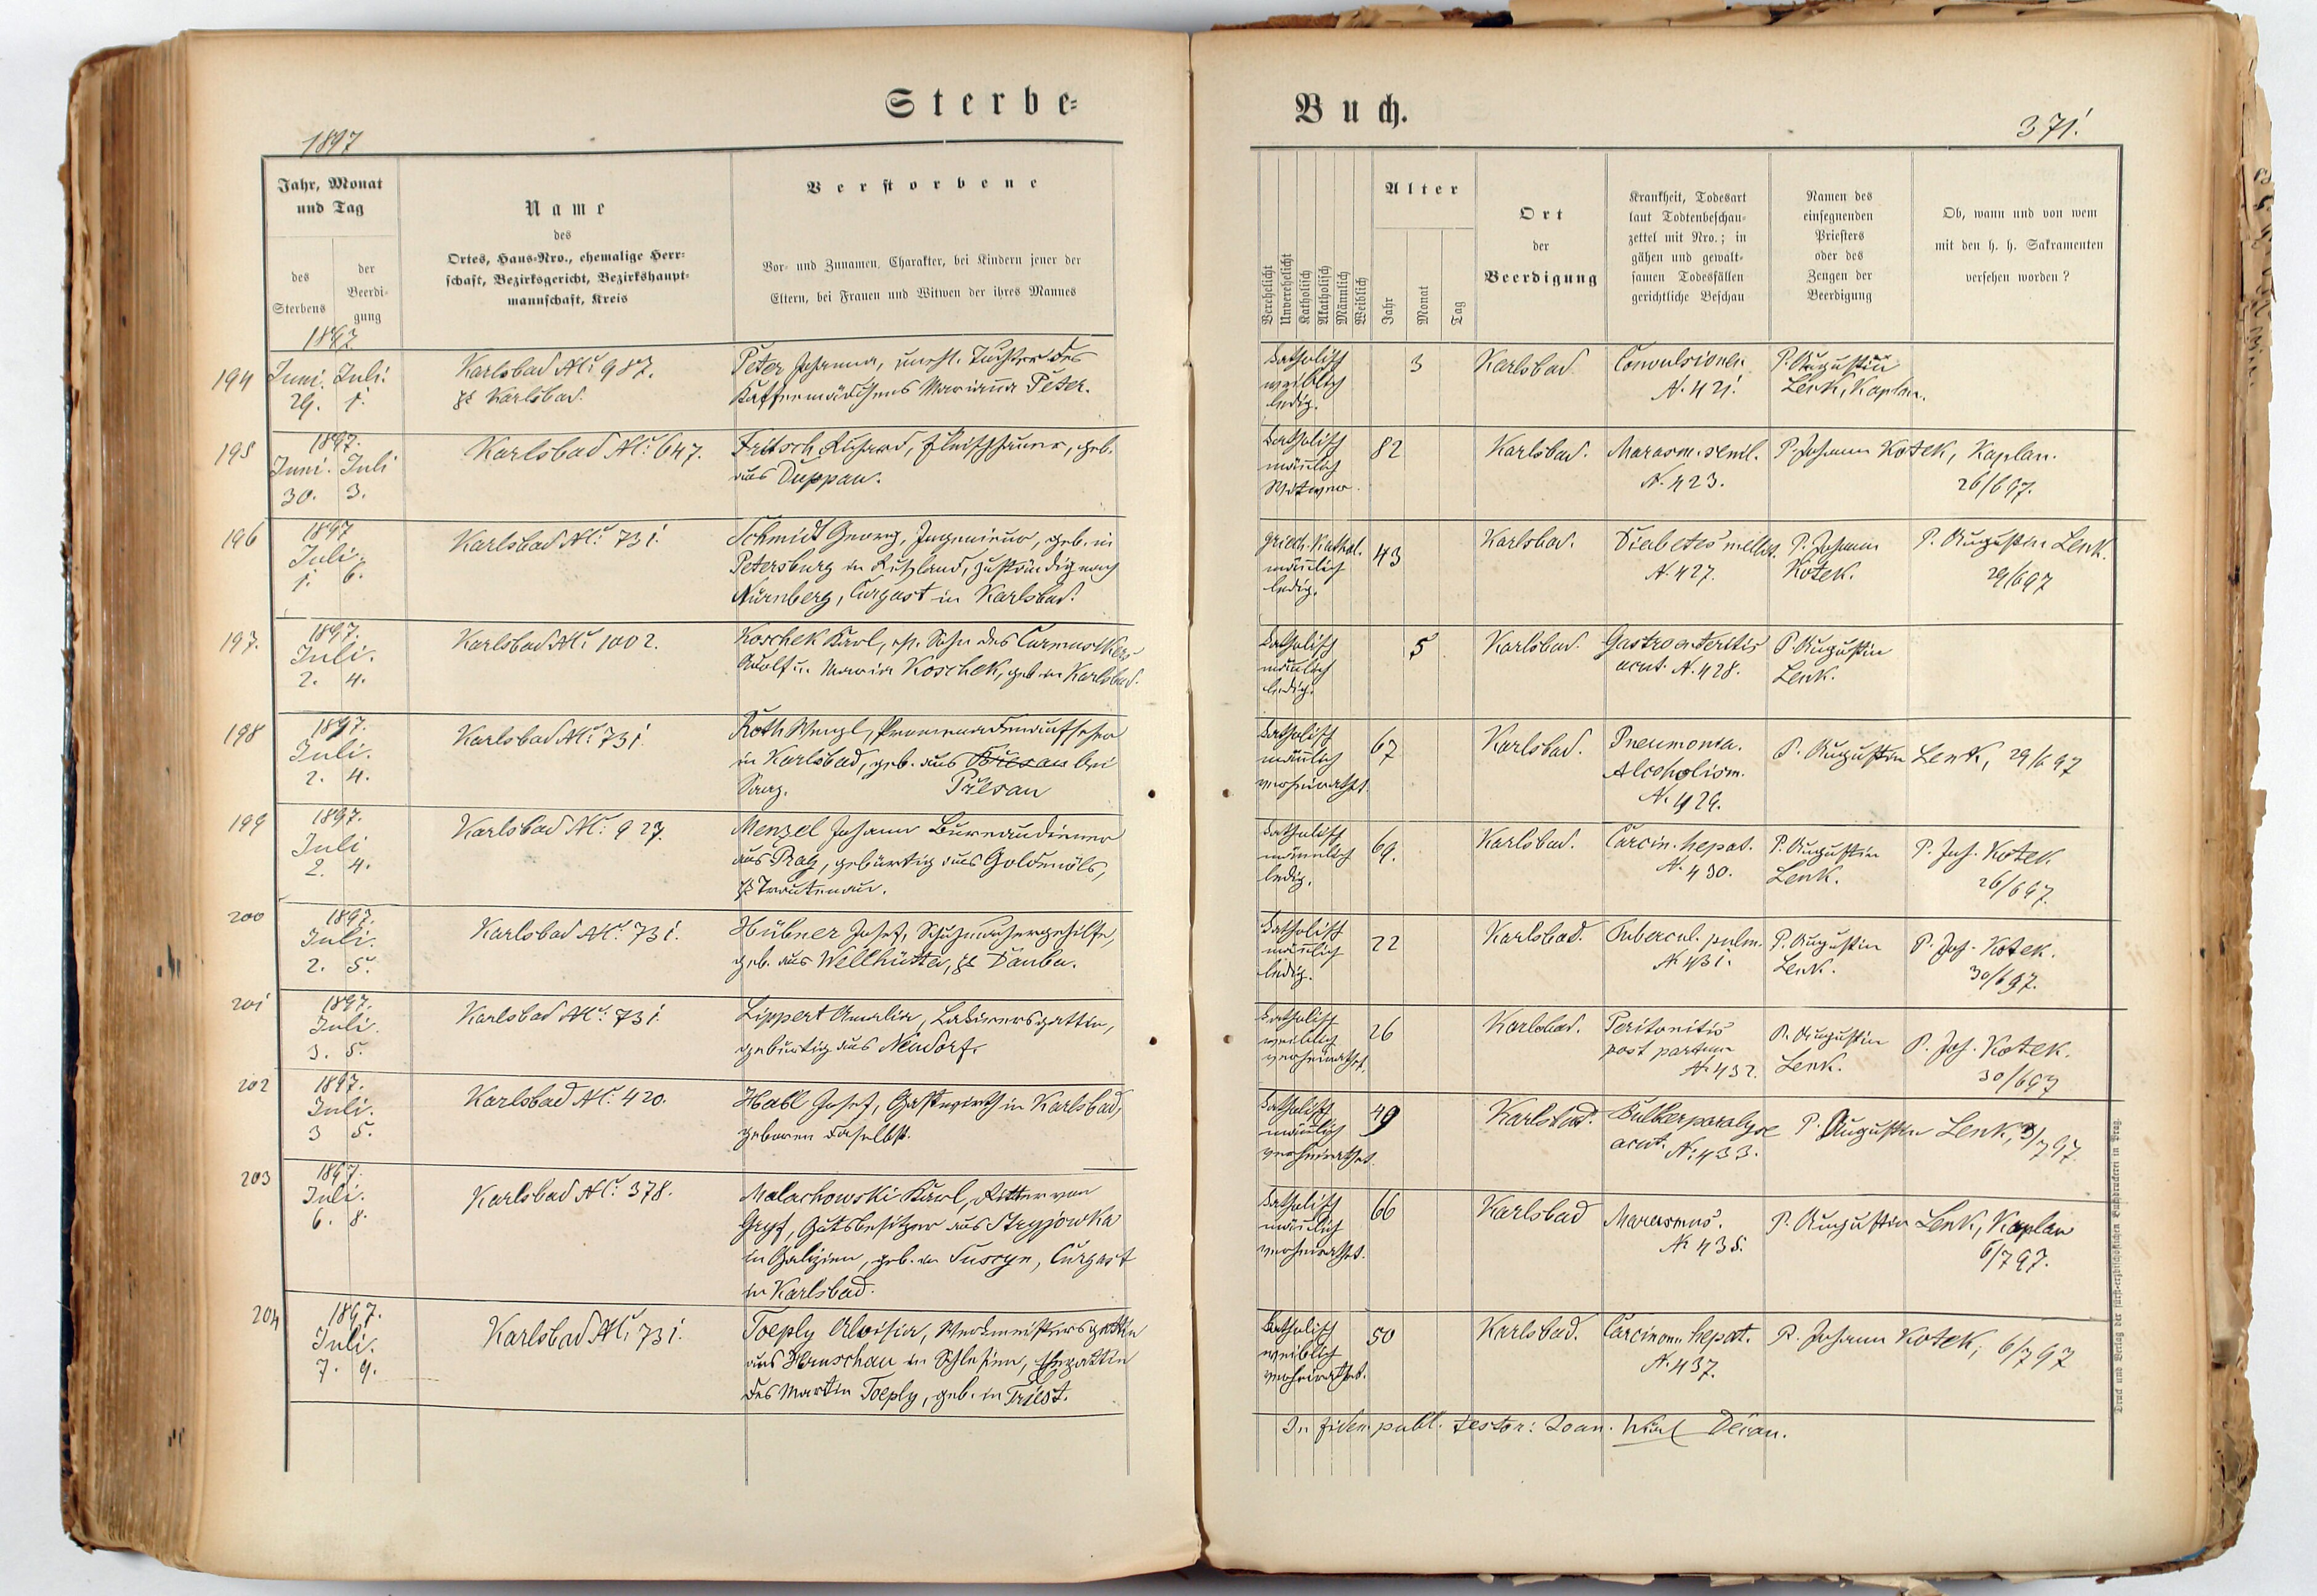 Sterbe-
Buch.
1897
371.
Jahr, Monat
und Tag
des
Sterbens
der
Beerdi-
gung
Name
des
Ortes, Haus-Nro., ehemalige Herr-
schaft, Bezirksgericht, Bezirkshaupt-
mannschaft, Kreis
Verstorbene
Vor- und Zunamen, Charakter, bei Kindern jener der
Eltern, bei Frauen und Witwen der ihres Mannes
Verehelicht
Unverehelicht
Katholisch
Akatholisch
Männlich
Weiblich
Alter
Jahr
Monat
Tag
Ort
der
Beerdigung
Krankheit, Todesart
laut Todtenbeschau-
zettel mit Nro.; in
gähen und gewalt-
samen Todesfällen
gerichtliche Beschau
Namen des
einsegnenden
Priesters
oder des
Zeugen der
Beerdigung
Ob, wann und von wem
mit den h. h. Sakramenten
versehen worden?
1897
194
Juni. Juli.
29. 1.
Karlsbad Nr: 987.
Karlsbad.
Peter Johanna, unehl. Tochter des
Kaffeemädchens Marianna Peter.
katholisch
weiblich
ledig.
3
Karlsbad.
Convulsionen
N. 421.
P. Augustin
Lenk, Kaplan.
195
1897.
Juni. Juli
30. 3.
Karlsbad Nr: 647.
Fritsch Richard, Fleischhauer, geb.
aus Duppau.
katholisch
männlich
Witwer.
82
Karlsbad.
Marasm. senil.
N. 423.
P. Johann Kotek, Kaplan.
26/6 97.
196
1897
Juli.
1. 6.
Karlsbad Nr: 731.
Schmidt Georg, Ingenieur, geb. in
Petersburg in Rußland, zuständig nach
Nürnberg, Curgast in Karlsbad.
griech. kathol.
männlich
ledig.
43
Karlsbad.
Diabetes mellit.
N. 427.
P. Johann
Kotek.
P. Augustin Lenk.
29/6 97
197.
1897.
Juli.
2. 4.
Karlsbad Nr: 1002.
Koschek Karl, eh. Sohn des
Adolf u. Maria Koschek, geb. in Karlsbad.
katholisch
männlich
ledig.
5
Karlsbad.
Gastroenteritis
acut. N. 428.
P. Augustin
Lenk.
198
1897.
Juli.
2. 4.
Karlsbad Nr: 731.
Roth Wenzl, Promenadenaufseher
in Karlsbad, geb. aus bei
Saaz. Přesau
katholisch
männlich
verheirathet.
67
Karlsbad.
Pneumonia.
Alcoholism.
N. 429.
P. Augustin Lenk, 29/6 97
199
1897.
Juli
2. 4.
Karlsbad Nr: 927.
Menzel Johann Bureaudiener
aus Prag, gebürtig aus Goldenöls,
Trautenau.
katholisch
männlich
ledig.
69.
Karlsbad.
Carcin. hepat.
N. 430.
P. Augustin
Lenk.
P. Joh. Kotek.
26/6 97.
200
1897.
Juli.
2. 5.
Karlsbad Nr: 731.
Hübner Josef, Schuhmachergehilfe,
geb. aus Wellhütta, Dauba.
katholisch
männlich
ledig.
22
Karlsbad.
Tubercul. pulm.
N. 431.
P. Augustin
Lenk.
P. Joh. Kotek.
30/6 97.
201
1897.
Juli.
3. 5.
Karlsbad Nr: 731.
Lippert Amalia, Lakirersgattin,
gebürtig aus Neudorf.
katholisch
weiblich
verheirathet.
26
Karlsbad.
Peritonitis
post partum
N. 432.
P. Augustin
Lenk.
P. Joh. Kotek.
30/6 97
202
1897.
Juli.
3 5.
Karlsbad Nr: 420.
Habl Josef, Gastwirth in Karlsbad,
geboren daselbst.
katholisch
männlich
verheirathet.
49
Karlsbad.
Bulbärparalyse
acut. N. 433.
P. Augustin Lenk, 3/7 97.
203
1897.
Juli.
6. 8.
Karlsbad Nr: 378.
Malachowski Karl, Ritter von
Gryf, Gutsbesitzer aus Stryjówka
in Galizien, geb. in Tuscyn, Curgast
in Karlsbad.
katholisch
männlich
verheirathet.
66
Karlsbad
Marasmus.
N. 435.
P. Augustin Lenk, Kaplan
6/7 97.
204
1897.
Juli.
7. 9.
Karlsbad Nr: 731.
Toeply Aloisia, Werkmeistersgattin
aus Hruschau in Schlesien, Ehegattin
des Martin Toeply, geb. in Triest.
katholisch
weiblich
verheirathet.
50
Karlsbad.
Carcinom. hepat.
N. 437.
P. Johann Kotek, 6/7 97
In fidem publ. testor: Joan. Decan.
Druck und Verlag der fürst-erzbischöflichen Buchdruckerei in Prag.